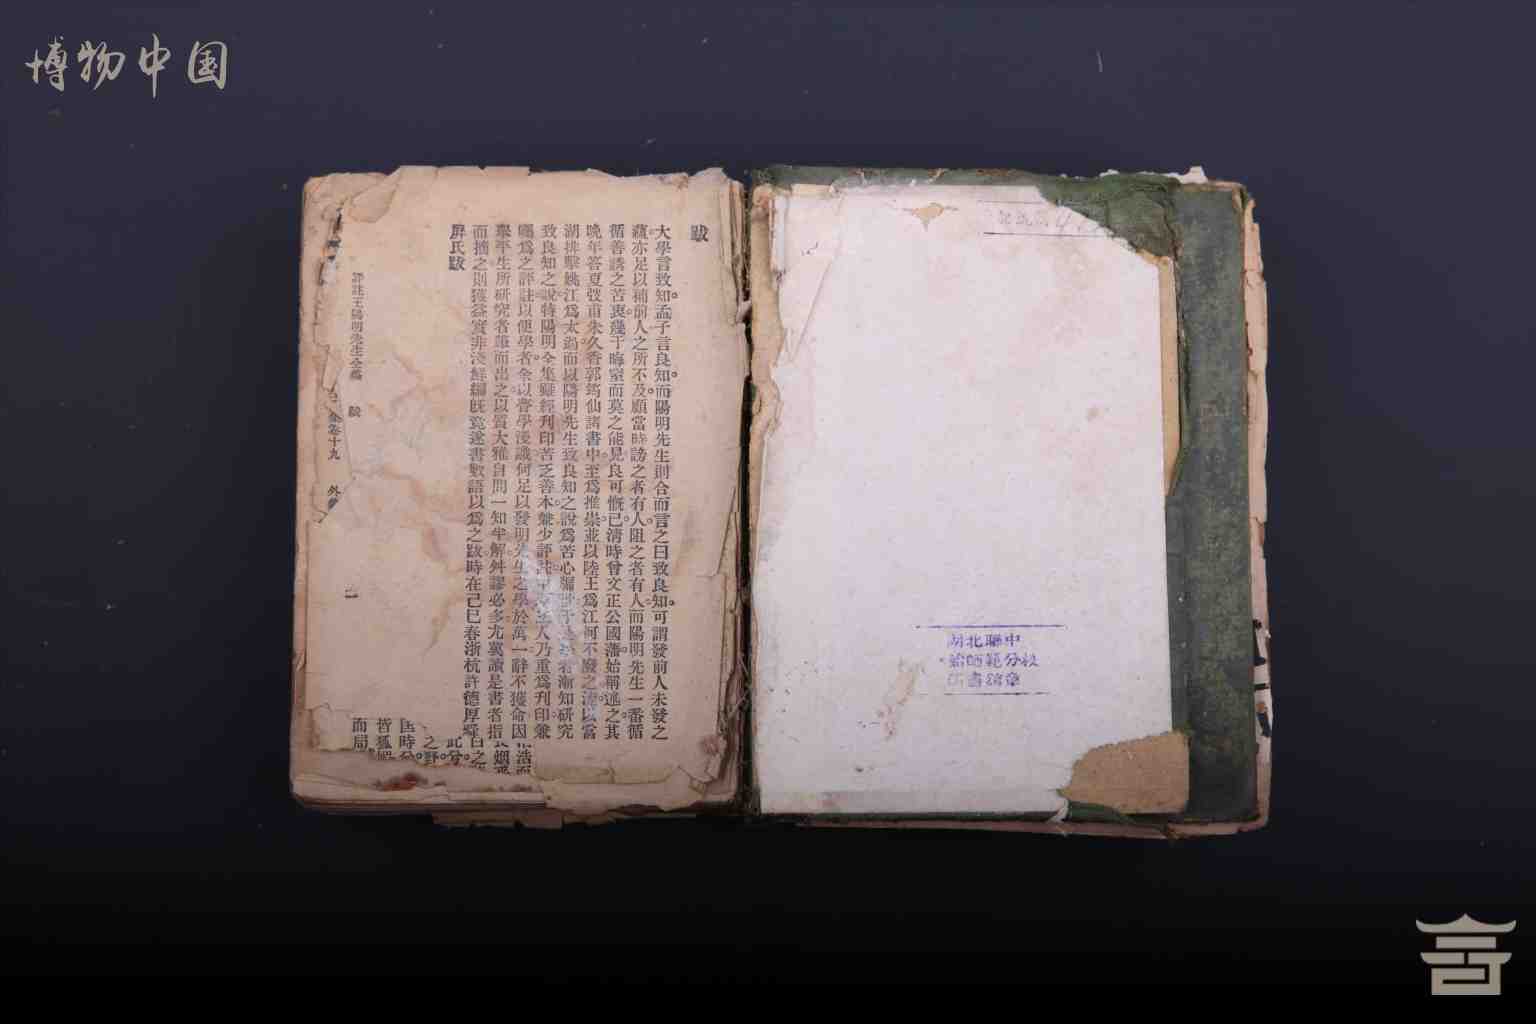 博物中国
跋
大學言致知。孟子言良知。而陽明先生則合而言之曰致良知。可謂發前人未發之
蘊。亦足以補前人之所不及。顧當時謗之者有人。阻之者有人。而陽明先生一番循
循善誘之苦衷。幾于晦窒而莫之能見。良可慨已。清時曾文正公國藩始稱述之。其
晚年答夏弢甫朱久香郭筠仙諸書中。至爲推崇。並以陸王爲江河不廢之流。以當
湖排擊姚江爲太過。而以陽明先生致良知之說爲苦心。
致良知之說。特陽明全集。雖經刊印。苦乏善本。兼少評註。人乃重爲刊印。兼
囑爲之評註。以便學者。余以膚學淺識。何足以發明先生之學於萬一。辭不獲命。因
舉平生所研究者。薙而出之。以質大雅。自問一知半解。舛謬必多。尤冀讀是書者。指
而摘之。則獲益實非淺鮮。編既竟。遂書數語以爲之跋。時在己巳春浙杭許德厚
屏氏跋
評註王陽明先生全集 跋
卷十九 外集
一
此兮。
之野。
時兮
皆狐
而局
湖北聯中
師範分校
圖書館章